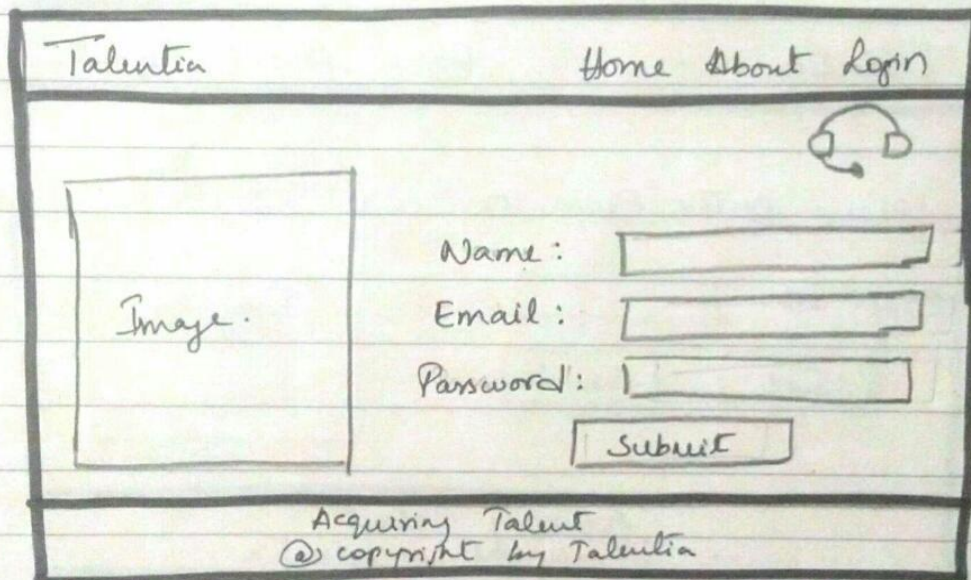 Talentia Home About Login
Name :
Image.
Email :
Password :
Submit
Acquiring Talent
@ copyright by Talentia